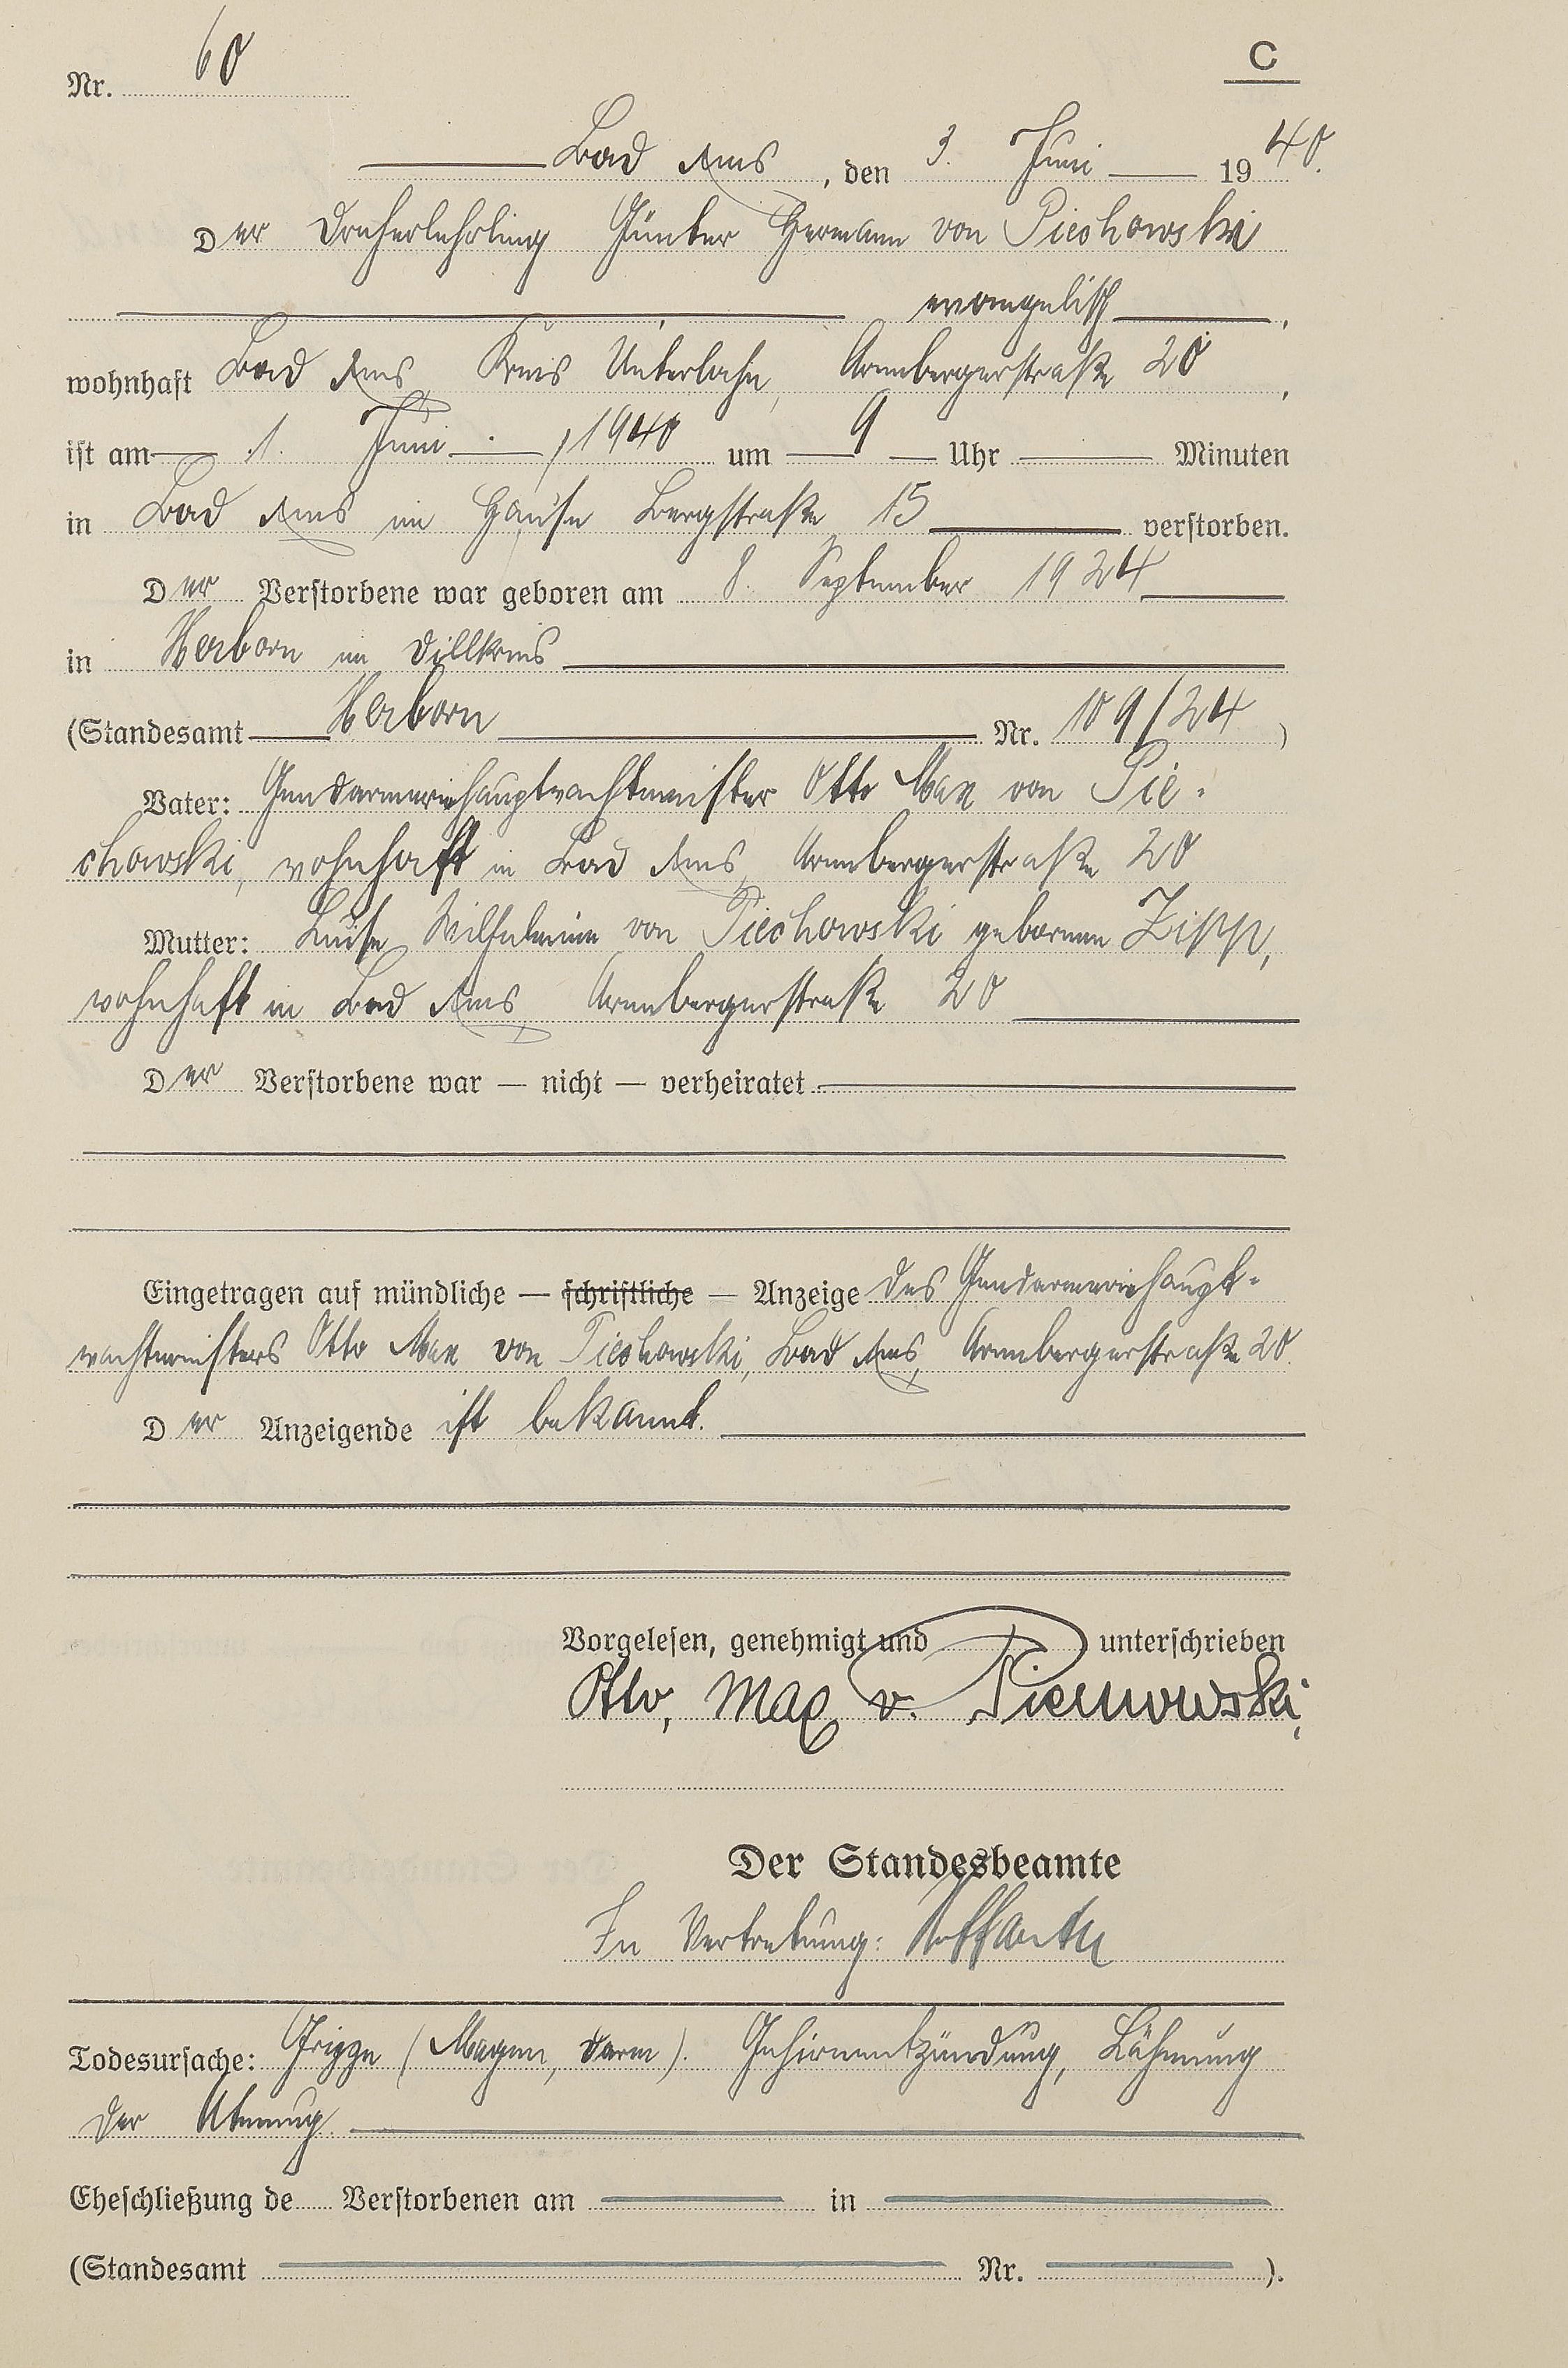 Nr. 60
C
Bad Ems, den 3. Juni 1940.
Der Dreherlehrling Günter Hermann von Piechowski
evangelisch,
wohnhaft Bad Ems, Kreis Unterlahn, Arenbergerstraße 20,
ist am 1. Juni 1940 um 9 Uhr Minuten
in Bad Ems im Hause Bergstraße 15 verstorben.
Der Verstorbene war geboren am 8. September 1924
in Herborn im Dillkreis
(Standesamt Herborn Nr. 109/24)
Vater: Gendarmeriehauptwachtmeister Otto Max von Pie-
chowski, wohnhaft in Bad Ems, Arenbergerstraße 20
Mutter: Luise Wilhelmine von Piechowski geborenen Zipp,
wohnhaft in Bad Ems Arenbergerstraße 20
Der Verstorbene war — nicht — verheiratet
Eingetragen auf mündliche — schriftliche — Anzeige des Gendarmeriehaupt-
wachtmeisters Otto Max von Piechowski, Bad Ems, Arenbergerstraße 20.
Der Anzeigende ist bekannt.
Vorgelesen, genehmigt und unterschrieben
Otto, Max v. Piechowski,
Der Standesbeamte
In Vertretung:
Todesursache: Grippe (Magen, Darm). Gehirnentzündung, Lähmung
der Atmung.
Eheschließung de Verstorbenen am in
(Standesamt Nr. ).